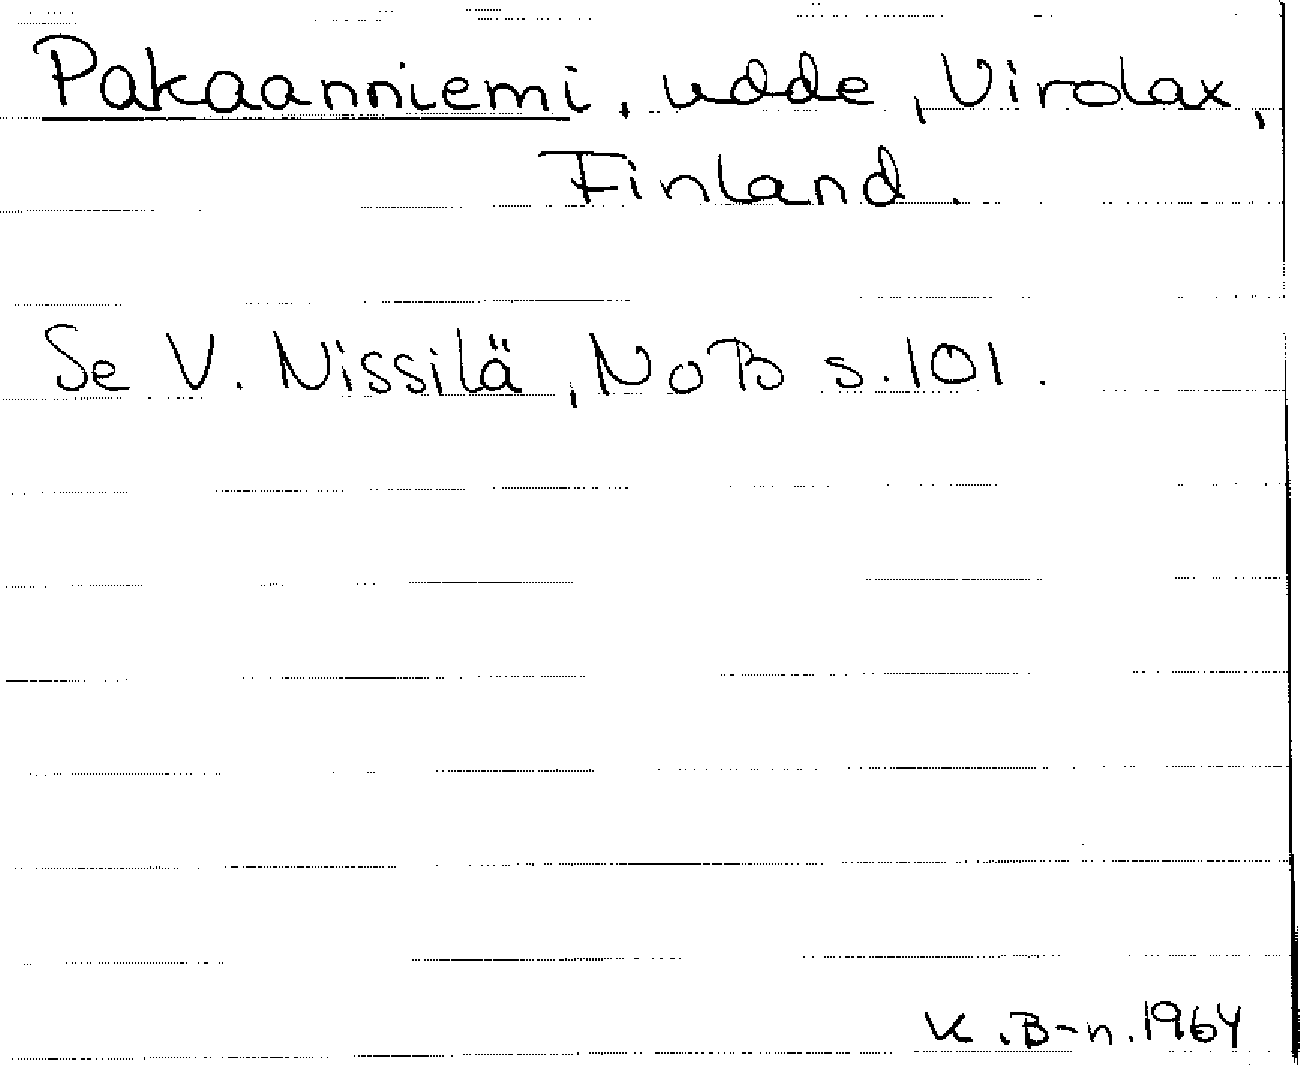 Pakaanniemi, udde, Virolax,
Finland.
Se V. Nissilä, NoB s. 101.
K. B-n. 1964